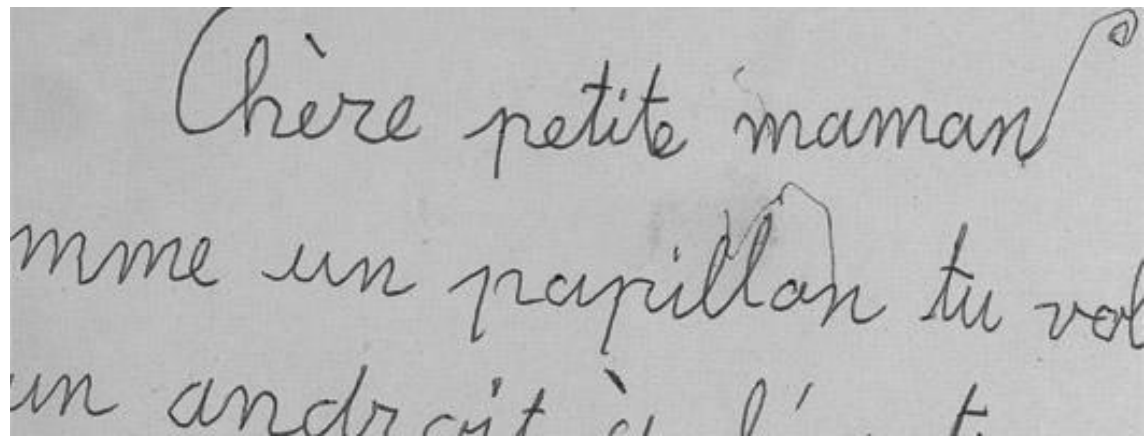 Chère petite maman
mme un papillon tu vol
un androit à l'